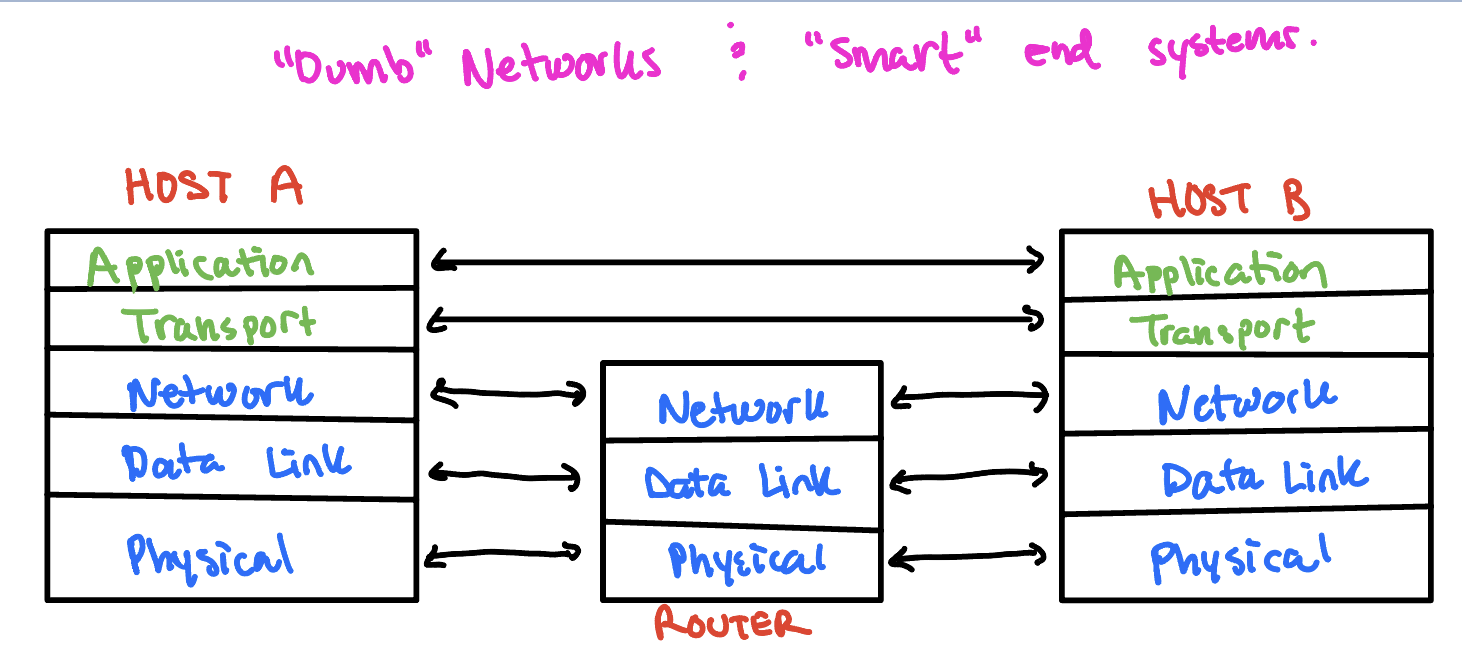 "Dumb" Networks & "Smart" end systems.
HOST A
Application
Transport
Network
Data Link
Physical
Network
Data Link
Physical
ROUTER
HOST B
Application
Transport
Network
Data Link
Physical